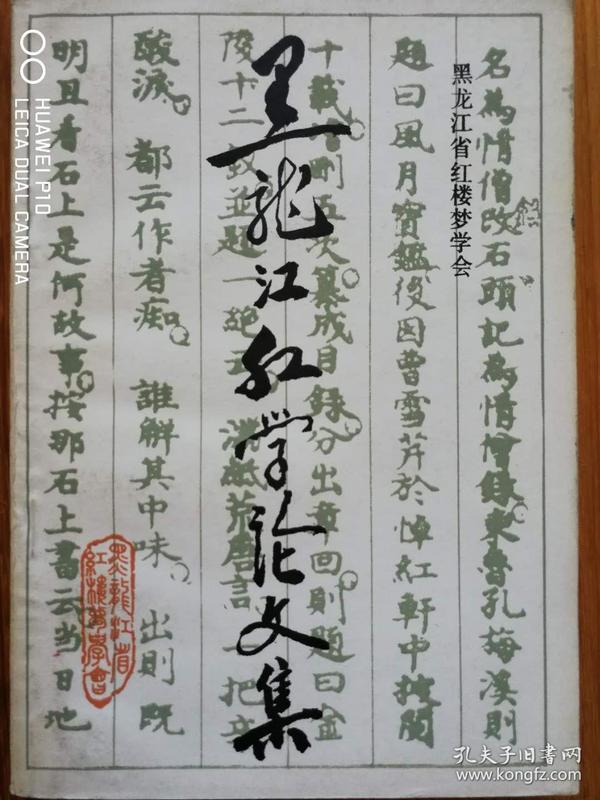 黑龙江红学论文集
黑龙江省红楼梦学会
名為情僧改石頭記為情僧錄東魯孔梅溪則
題曰風月寶鑑後因曹雪芹於悼紅軒中披閱
十載增刪五次纂成目錄分出章回則題曰金
陵十二釵並題一絕云 滿紙荒唐言 一把辛
酸淚。 都云作者痴。 誰解其中味。 出則既
明且看石上是何故事。按那石上書云當日地
黑龍江省
紅樓夢學會
HUAWEI P10
LEICA DUAL CAMERA
孔夫子旧书网
www.kongfz.com